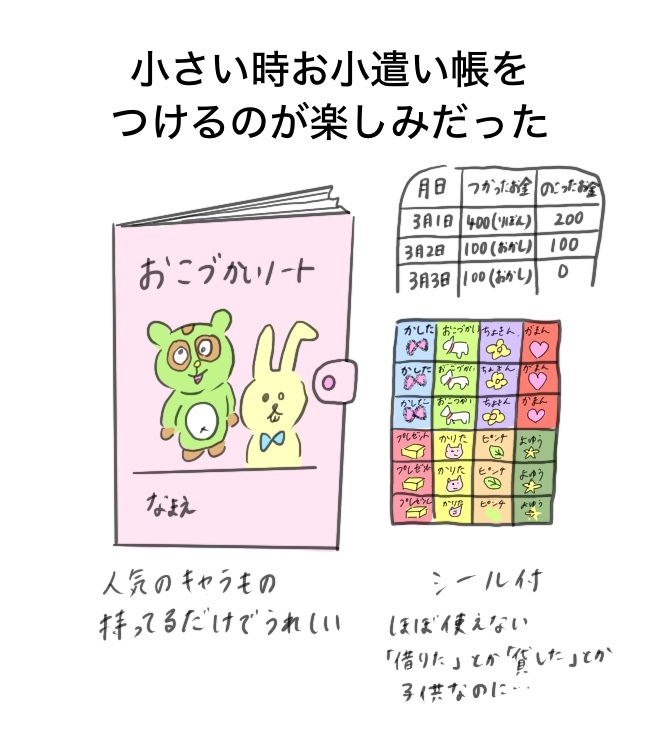 小さい時お小遣い帳を
つけるのが楽しみだった
月日 つかったお金 のこったお金
3月1日 400(りぼん) 200
3月2日 100(おかし) 100
3月3日 100(おかし) 0
おこづかいノート
なまえ
かした おこづかい ちょきん がまん
かした おこづかい ちょきん がまん
かした おこづかい ちょきん がまん
プレゼント かりた ピンチ よゆう
プレゼント かりた ピンチ よゆう
プレゼント かりた ピンチ よゆう
人気のキャラもの
持ってるだけでうれしい
シール付
ほぼ使えない
「借りた」とか「貸した」とか
子供なのに…